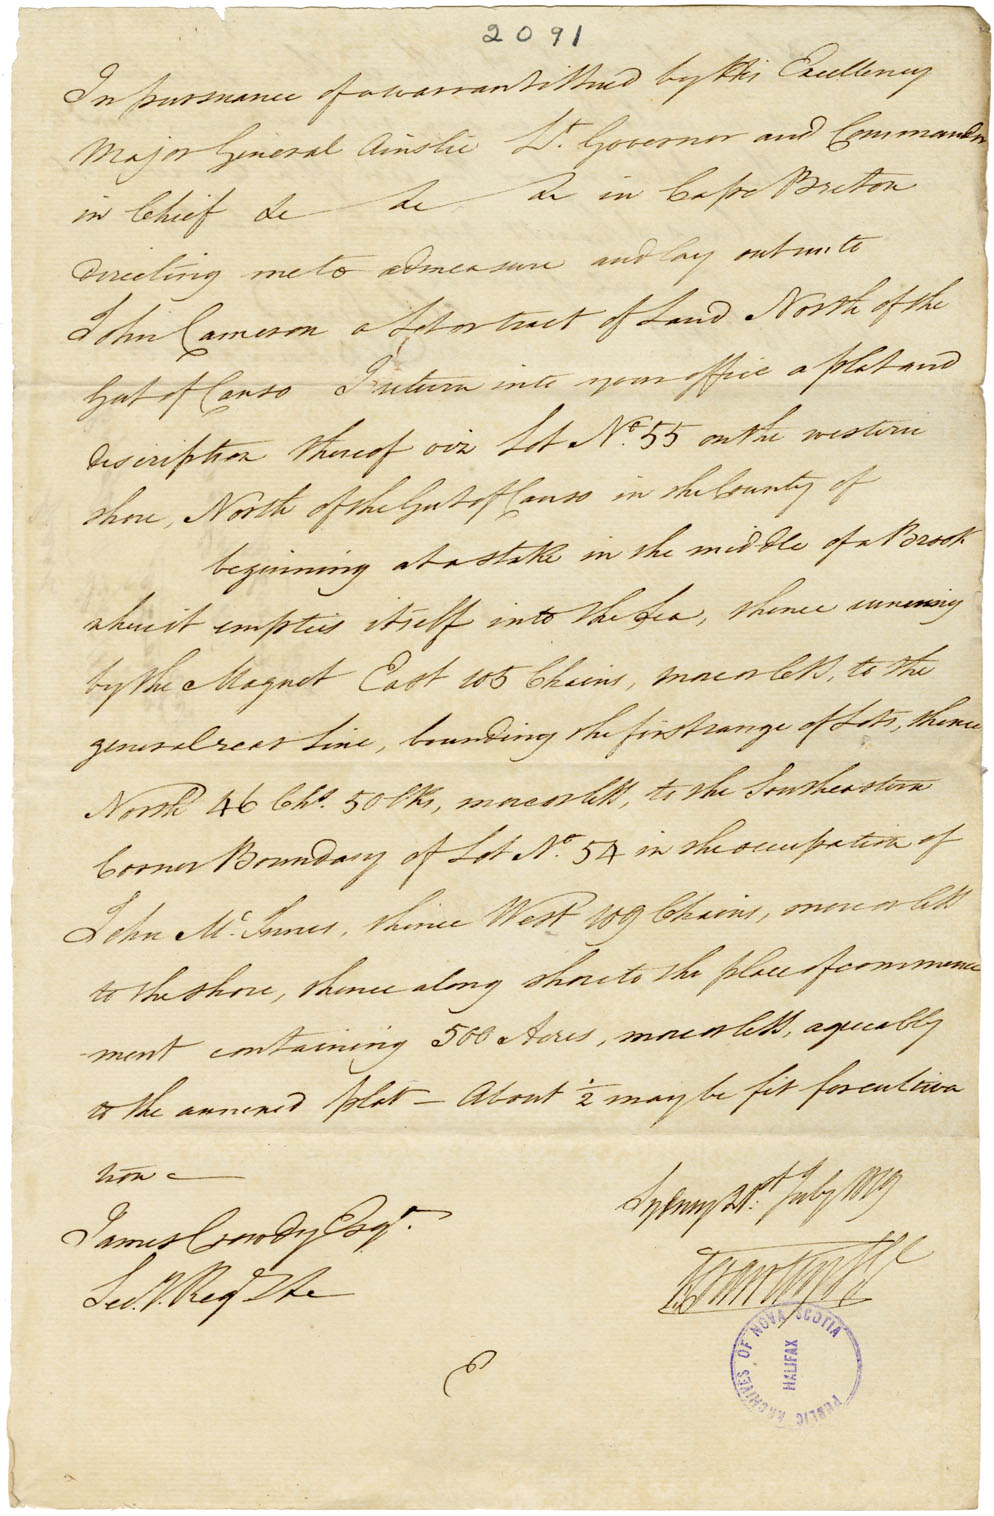 2091
In pursuance of a warrant issued by His Excellency
Major General Ainslie Lt. Governor and Commander
in Chief &c &c &c in Cape Breton
directing me to admeasure and lay out unto
John Cameron a Lot or tract of Land North of the
Gut of Canso I return into your office a plat and
discription thereof viz Lot No. 55 on the western
shore, North of the Gut of Canso in the County of
beginning at a stake in the middle of a Brook
where it empties itself into the Sea, thence running
by the Magnet East 105 Chains, more or less, to the
general rear line, bounding the first range of Lots, thence
North 46 Chs. 50 lks, more or less, to the Southeastern
Corner Boundary of Lot No. 54 in the occupation of
John Mc.Innes, thence West 109 Chains, more or less
to the shore, thence along shore to the place of commence
-ment containing 500 Acres, more or less, agreeably
to the annexed plat — About 1/2 may be fit for cultiva
tion —
Sydney 21st. July 1819
James Crowdy Esqr.
Secy. Regr. &c
PUBLIC ARCHIVES OF NOVA SCOTIA
HALIFAX